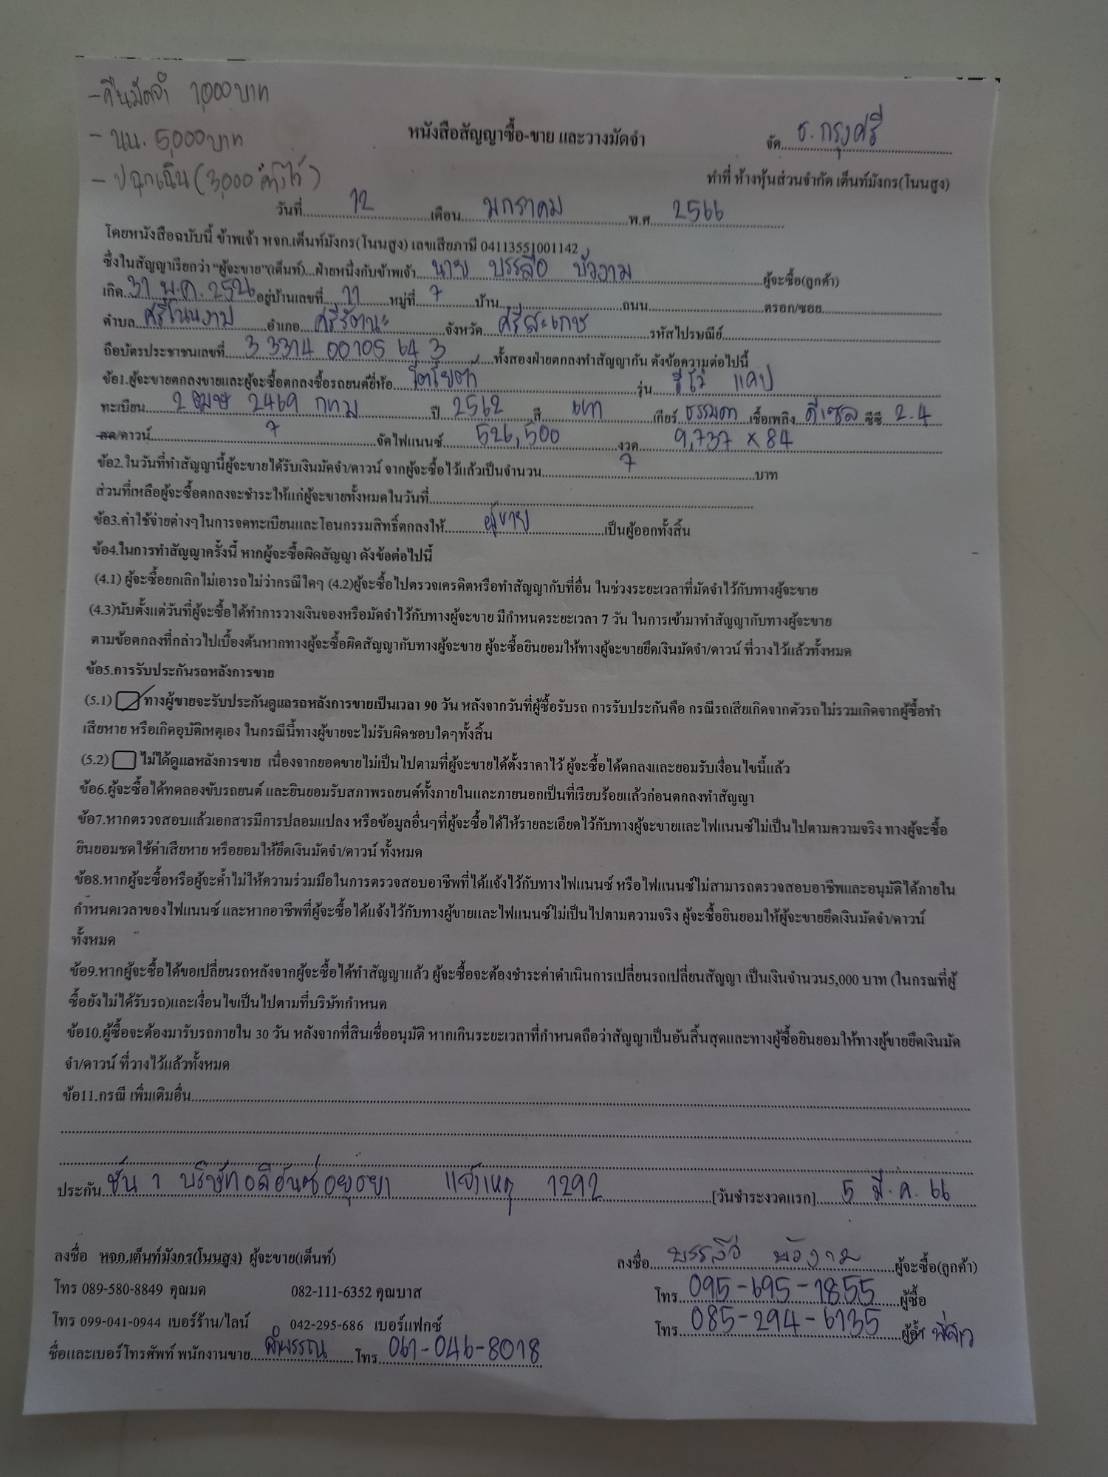 - คืนมัดจำ 1,000 บาท
- นน. 5,000 บาท
- ปลุกเฉิน (3,000 ค่าโว้)
หนังสือสัญญาซื้อ-ขาย และวางมัดจำ
จัด ธ. กรุงศรี
ทำที่ ห้างหุ้นส่วนจำกัด เต็นท์มังกร(โนนสูง)
วันที่ 12 เดือน มกราคม พ.ศ. 2566
โดยหนังสือฉบับนี้ ข้าพเจ้า หจก.เต็นท์มังกร(โนนสูง) เลขเสียภาษี 04113551001142
ซึ่งในสัญญาเรียกว่า "ผู้จะขาย"(เต็นท์) ฝ่ายหนึ่งกับข้าพเจ้า นาย บรรลือ บัวงาม ผู้จะซื้อ(ลูกค้า)
เกิด 31 พ.ค. 252 อยู่บ้านเลขที่ 11 หมู่ที่ 7 บ้าน ถนน ตรอก/ซอย
ตำบล ศรีโนนงาม อำเภอ ศรีรัตนะ จังหวัด ศรีสะเกษ รหัสไปรษณีย์
ถือบัตรประชาชนเลขที่ 3 3314 00105 64 3 ทั้งสองฝ่ายตกลงทำสัญญากัน ดังข้อความต่อไปนี้
ข้อ1.ผู้จะขายตกลงขายและผู้จะซื้อตกลงซื้อรถยนต์ยี่ห้อ โตโยต้า รุ่น รีโว้ แคป
ทะเบียน 2ฒษ 2469 กทม ปี 2562 สี เทา เกียร์ ธรรมดา เชื้อเพลิง ดีเซล ซีซี 2.4
สด/ดาวน์ 7 จัดไฟแนนซ์ 526,500 งวด 9,737 x 84
ข้อ2.ในวันที่ทำสัญญานี้ผู้จะขายได้รับเงินมัดจำ/ดาวน์ จากผู้จะซื้อไว้แล้วเป็นจำนวน 7 บาท
ส่วนที่เหลือผู้จะซื้อตกลงจะชำระให้แก่ผู้จะขายทั้งหมดในวันที่
ข้อ3.ค่าใช้จ่ายต่างๆในการจดทะเบียนและโอนกรรมสิทธิ์ตกลงให้ ผู้ขาย เป็นผู้ออกทั้งสิ้น
ข้อ4.ในการทำสัญญาครั้งนี้ หากผู้จะซื้อผิดสัญญา ดังข้อต่อไปนี้
(4.1) ผู้จะซื้อยกเลิกไม่เอารถไม่ว่ากรณีใดๆ (4.2)ผู้จะซื้อไปตรวจเครดิตหรือทำสัญญากับที่อื่น ในช่วงระยะเวลาที่มัดจำไว้กับทางผู้จะขาย
(4.3)นับตั้งแต่วันที่ผู้จะซื้อได้ทำการวางเงินจองหรือมัดจำไว้กับทางผู้จะขาย มีกำหนดระยะเวลา 7 วัน ในการเข้ามาทำสัญญากับทางผู้จะขาย
ตามข้อตกลงที่กล่าวไปเบื้องต้นหากทางผู้จะซื้อผิดสัญญากับทางผู้จะขาย ผู้จะซื้อยินยอมให้ทางผู้จะขายยึดเงินมัดจำ/ดาวน์ ที่วางไว้แล้วทั้งหมด
ข้อ5.การรับประกันรถหลังการขาย
(5.1) ทางผู้ขายจะรับประกันดูแลรถหลังการขายเป็นเวลา 90 วัน หลังจากวันที่ผู้ซื้อรับรถ การรับประกันคือ กรณีรถเสียเกิดจากตัวรถ ไม่รวมเกิดจากผู้ซื้อทำ
เสียหาย หรือเกิดอุบัติเหตุเอง ในกรณีนี้ทางผู้ขายจะไม่รับผิดชอบใดๆทั้งสิ้น
(5.2) ไม่ได้ดูแลหลังการขาย เนื่องจากยอดขายไม่เป็นไปตามที่ผู้จะขายได้ตั้งราคาไว้ ผู้จะซื้อได้ตกลงและยอมรับเงื่อนไขนี้แล้ว
ข้อ6.ผู้จะซื้อได้ทดลองขับรถยนต์ และยินยอมรับสภาพรถยนต์ทั้งภายในและภายนอกเป็นที่เรียบร้อยแล้วก่อนตกลงทำสัญญา
ข้อ7.หากตรวจสอบแล้วเอกสารมีการปลอมแปลง หรือข้อมูลอื่นๆที่ผู้จะซื้อได้ให้รายละเอียดไว้กับทางผู้จะขายและไฟแนนซ์ไม่เป็นไปตามความจริง ทางผู้จะซื้อ
ยินยอมชดใช้ค่าเสียหาย หรือยอมให้ยึดเงินมัดจำ/ดาวน์ ทั้งหมด
ข้อ8.หากผู้จะซื้อหรือผู้จะค้ำไม่ให้ความร่วมมือในการตรวจสอบอาชีพที่ได้แจ้งไว้กับทางไฟแนนซ์ หรือไฟแนนซ์ไม่สามารถตรวจสอบอาชีพและอนุมัติได้ภายใน
กำหนดเวลาของไฟแนนซ์ และหากอาชีพที่ผู้จะซื้อได้แจ้งไว้กับทางผู้ขายและไฟแนนซ์ไม่เป็นไปตามความจริง ผู้จะซื้อยินยอมให้ผู้จะขายยึดเงินมัดจำ/ดาวน์
ทั้งหมด
ข้อ9.หากผู้จะซื้อได้ขอเปลี่ยนรถหลังจากผู้จะซื้อได้ทำสัญญาแล้ว ผู้จะซื้อจะต้องชำระค่าดำเนินการเปลี่ยนรถเปลี่ยนสัญญา เป็นเงินจำนวน5,000 บาท (ในกรณที่ผู้
ซื้อยังไม่ได้รับรถ)และเงื่อนไขเป็นไปตามที่บริษัทกำหนด
ข้อ10.ผู้ซื้อจะต้องมารับรถภายใน 30 วัน หลังจากที่สินเชื่ออนุมัติ หากเกินระยะเวลาที่กำหนดถือว่าสัญญาเป็นอันสิ้นสุดและทางผู้ซื้อยินยอมให้ทางผู้ขายยึดเงินมัด
จำ/ดาวน์ ที่วางไว้แล้วทั้งหมด
ข้อ11.กรณี เพิ่มเติมอื่น
ประกัน ชั้น 1 บริษัทอลิอันซ์อยุธยา แจ้งเหตุ 1292 [วันชำระงวดแรก] 5 มี.ค. 66
ลงชื่อ หจก.เต็นท์มังกร(โนนสูง) ผู้จะขาย(เต็นท์)
ลงชื่อ บรรลือ บัวงาม ผู้จะซื้อ(ลูกค้า)
โทร 089-580-8849 คุณมด 082-111-6352 คุณบาส
โทร 095-695-1855 ผู้ซื้อ
โทร 099-041-0944 เบอร์ร้าน/ไลน์ 042-295-686 เบอร์แฟกซ์
โทร 085-294-6135 ผู้ค้ำ พี่สาว
ชื่อและเบอร์โทรศัพท์ พนักงานขาย คำพรรณ โทร 061-046-8018